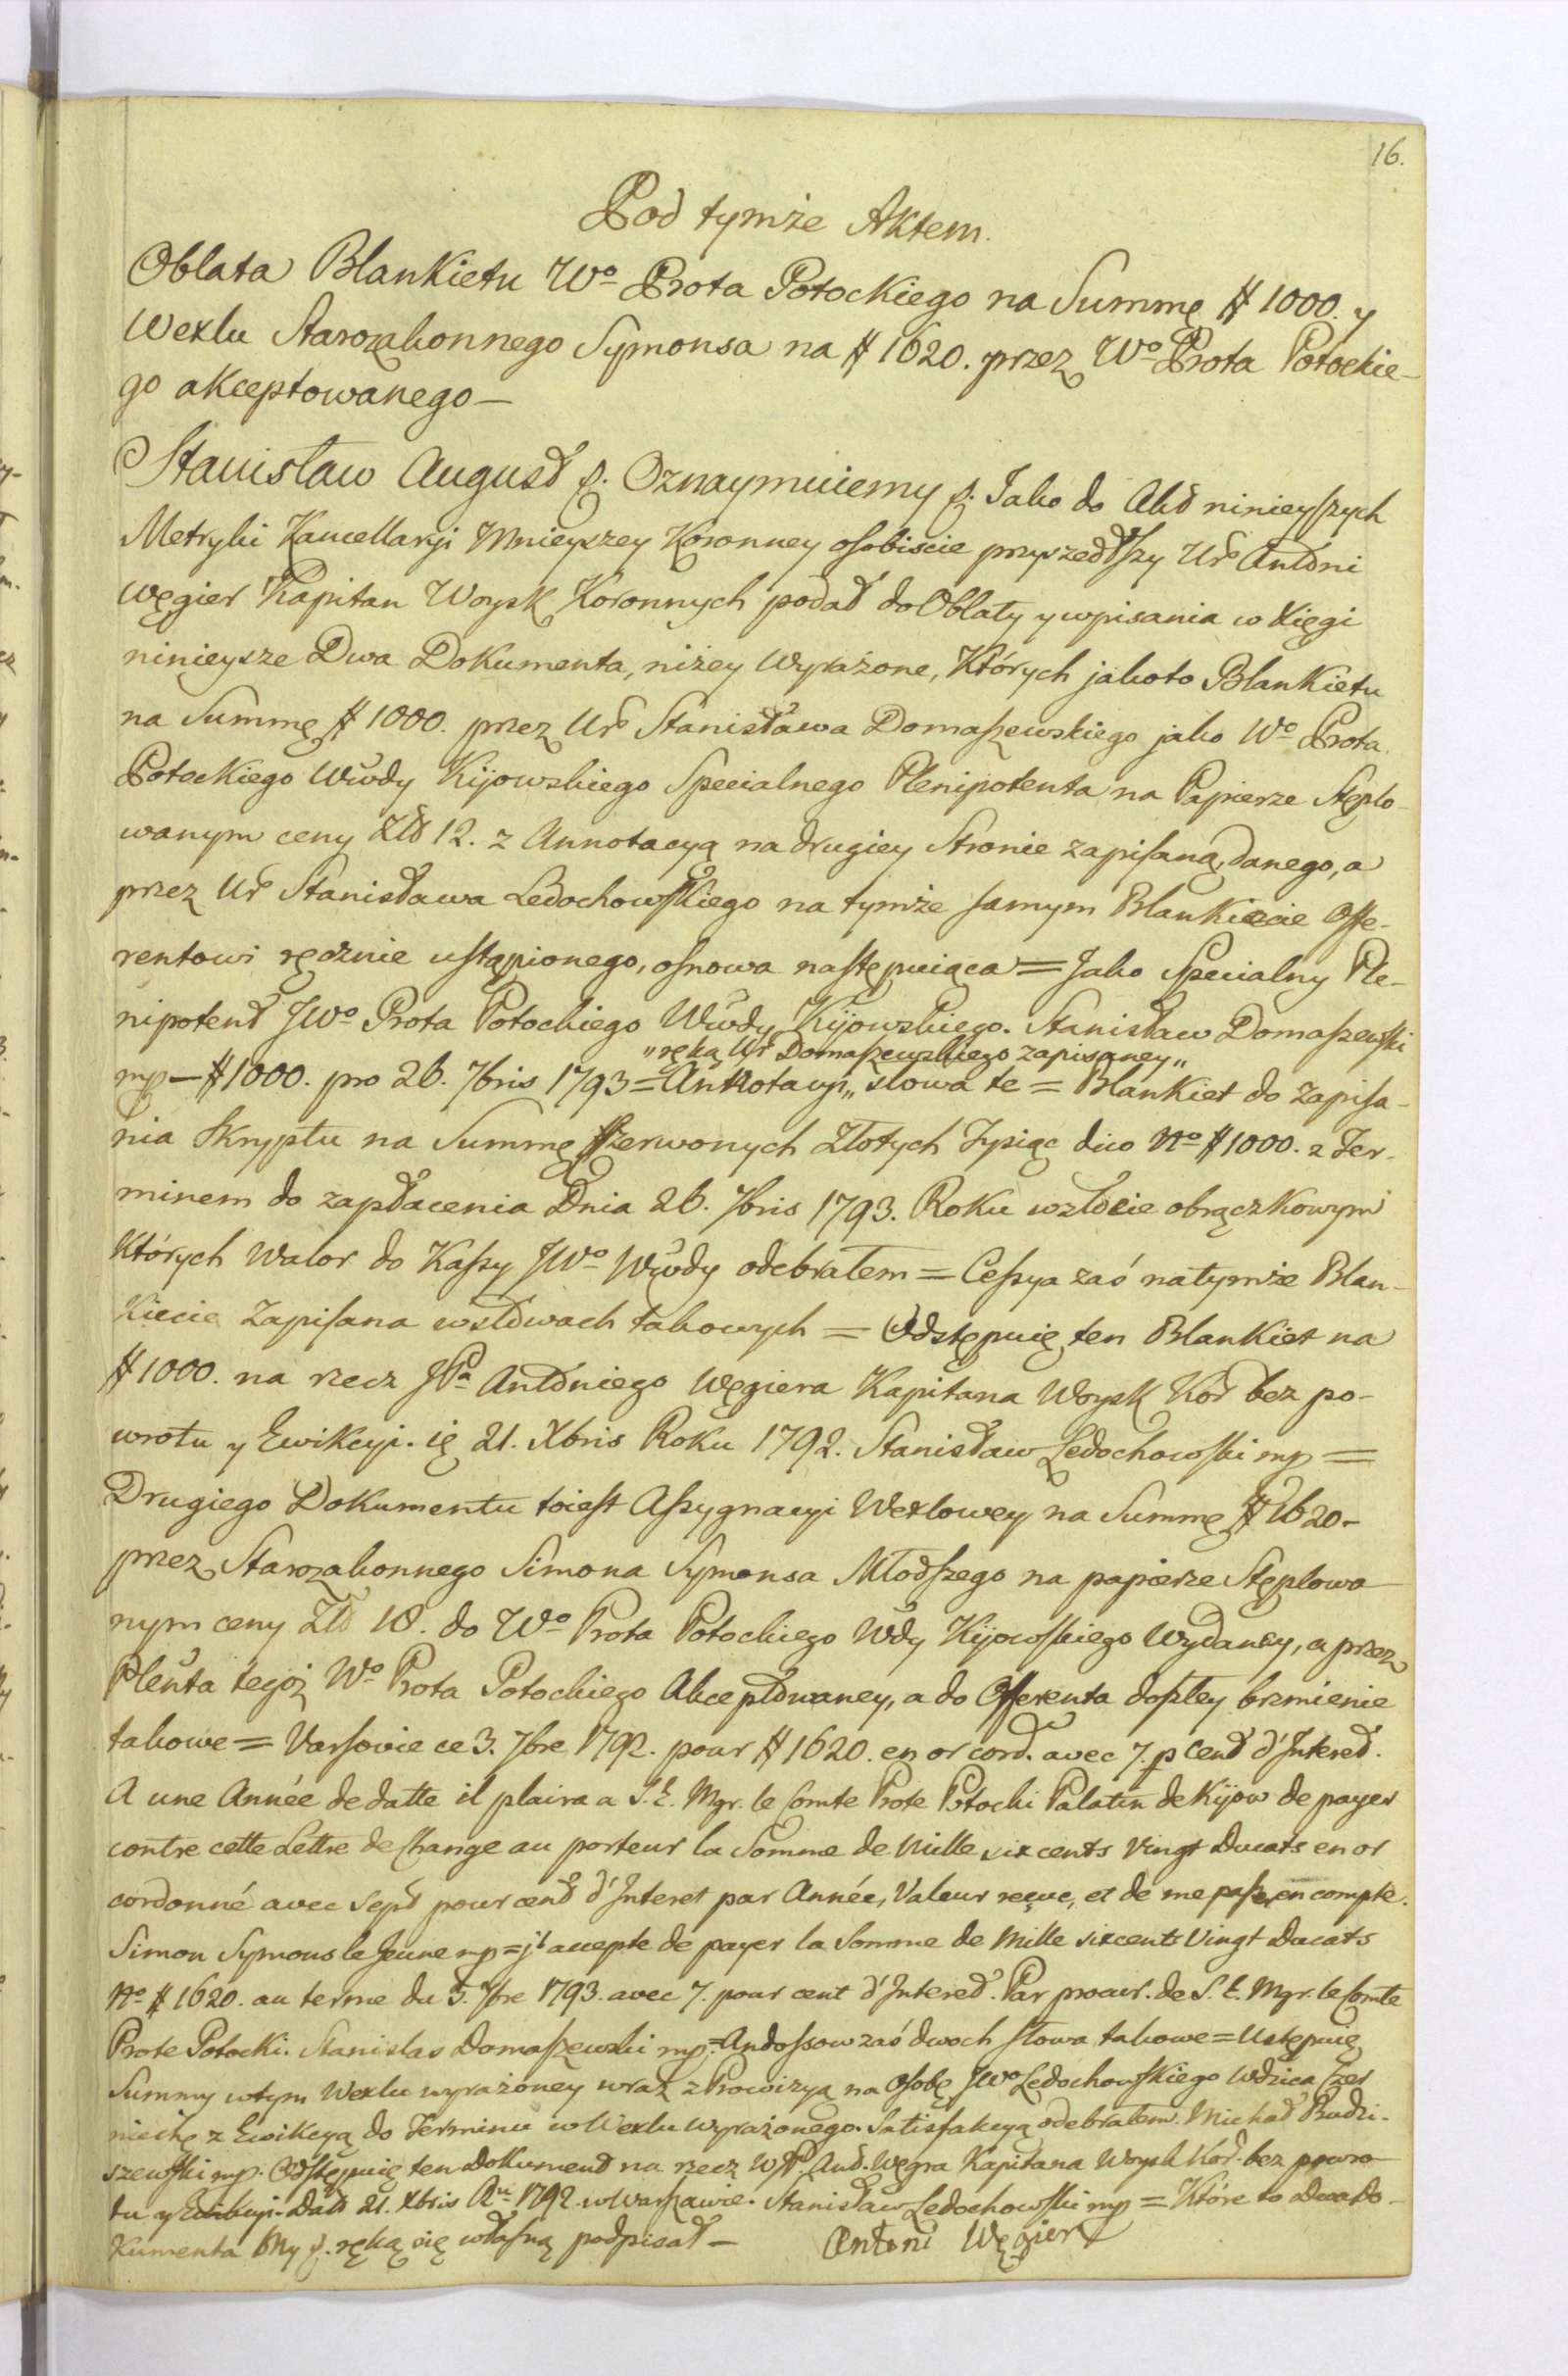 16.
Pod tymże Aktem.
Oblata Blankietu Wo Prota Potockiego na Summę # 1000. y
Wexlu Starozakonnego Symonsa na # 1620. przez Wo Prota Potockie-
go akceptowanego—
Stanisław August &. Oznaymuiemy &. Jako do Akt ninieyszych
Metryki Kancellaryi Mnieyszey Koronney osobiscie przyszedłszy Ur Antoni
Węgier Kapitan Woysk Koronnych podał do Oblaty y wpisania w Xięgi
ninieysze Dwa Dokumenta, niżey wyrażone, Których jakoto Blankietu
na Summę # 1000. przez Ur Stanisława Domaszewskiego jako Wo Prota
Potockiego Wwdy Kijowskiego Specialnego Plenipotenta na Papierze Stęplo-
wanym ceny Złt 12. z Annotacyą na drugiey Stronie zapisaną, danego, a
przez Ur Stanisława Ledochowskiego na tymże samym Blankiecie Offe-
rentowi ręcznie ustąpionego, osnowa następuiąca = Jako Specialny Ple-
nipotent JWo Prota Potockiego Wwdy Kijowskiego. Stanisław Domaszewski
„ręką Ur Domaszewskiego zapisaney„
mp — # 1000. pro 26. 7bris 1793 = Annotacyi„ słowa te = Blankiet do zapisa-
nia Skryptu na Summę Czerwonych Złotych Tysiąc dico No # 1000. z Ter-
minem do zapłacenia Dnia 26. 7bris 1793. Roku wzłocie obrączkowym
Których Walor do Kassy JWo Wwdy odebrałem = Cessya zaś natymże Blan-
kiecie Zapisana wsłowach takowych = Odstępuię ten Blankiet na
# 1000. na rzecz JPa Antoniego Węgiera Kapitana Woysk Kor bez po-
wrotu y Ewikcyi. ię 21. Xbris Roku 1792. Stanisław Ledochowski mp =
Drugiego Dokumentu toiest Assygnacyi Wexlowey na Summę # 1620-
przez Starozakonnego Simona Symonsa Młodszego na papierze Stęplowa-
nym ceny Złt 18. do Wo Prota Potockiego Wdy Kijowskiego wydaney, a przez
Plenta tegoż Wo Prota Potockiego Akceptowaney, a do Offerenta doszłey brzmienie
takowe = Varsovie ce 3. 7bre 1792. pour # 1620. en or cord. avec 7. p Cent d'Interet.
A une Année de datte il plaira a S. E. Mgr. le Comte Prote Potocki Palatin de Kijow de payer
contre cette Lettre de Change au porteur la Somme de Mille six cents Vingt Ducats en or
cordonné avec Sept pour cent d'Interet par Année, Valeur reçue, et de me passer en compte.
Simon Symons le Jeune mp = j'accepte de payer la Somme de Mille sixcents Vingt Ducats
No # 1620. au terme du 3. 7bre 1793. avec 7. pour cent d'Interet. Par procur. de S. E. Mgr. le Comte
Prote Potocki. Stanislas Domaszewski mp. = Andossow zaś dwoch słowa takowe = Ustępuię
Summy wtym Wexlu wyrażoney wraz z Prowizyą na Osobę JWo Ledochowskiego Wdzica Czer
niechę z Ewikcyą do Terminu w Wexlu wyrażonego. Satisfakcyą odebrałem. Michał Budzi-
szewski mp. Odstępuię ten Dokument na rzecz WJP. Ant. Węgra Kapitana Woysk Kor. bez powro-
tu y Ewikcyi. Datt 21. Xbris Ru 1792. w Warszawie. Stanisław Ledochowski mp = Które to Dwa Do-
kumenta My &. ręką się własną podpisał —
Antoni Węgier